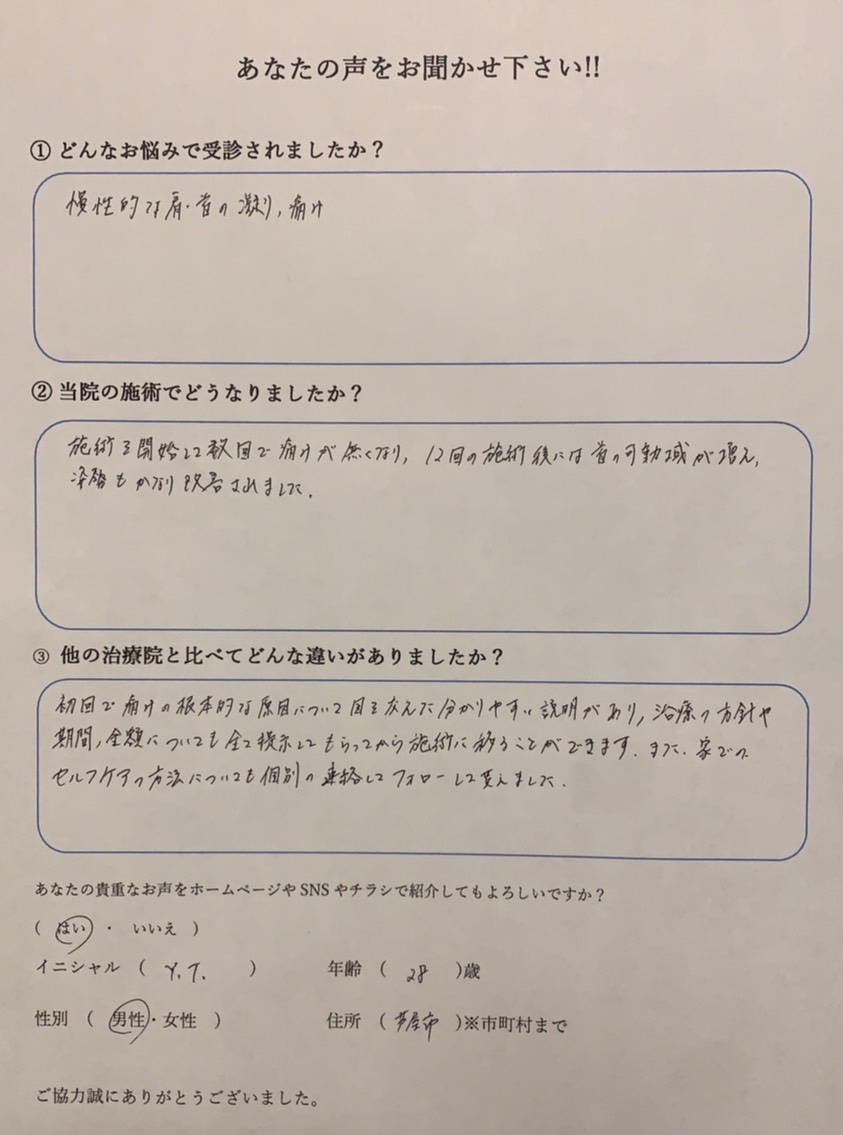 あなたの声をお聞かせ下さい!!
① どんなお悩みで受診されましたか？
慢性的な肩・首の凝り，痛み
② 当院の施術でどうなりましたか？
施術を開始して数回で痛みが無くなり，12回の施術後には首の可動域が増え，
姿勢もかなり改善されました．
③ 他の治療院と比べてどんな違いがありましたか？
初回で痛みの根本的な原因について図を交えた分かりやすい説明があり，治療の方針や
期間，金額についても全て提示してもらってから施術に移ることができます．また，家での
セルフケアの方法についても個別の連絡してフォローして貰えました．
あなたの貴重なお声をホームページやSNSやチラシで紹介してもよろしいですか？
( はい ・ いいえ )
イニシャル ( Y.T. ) 年齢 ( 28 )歳
性別 ( 男性・女性 ) 住所 ( 芦屋市 )※市町村まで
ご協力誠にありがとうございました。